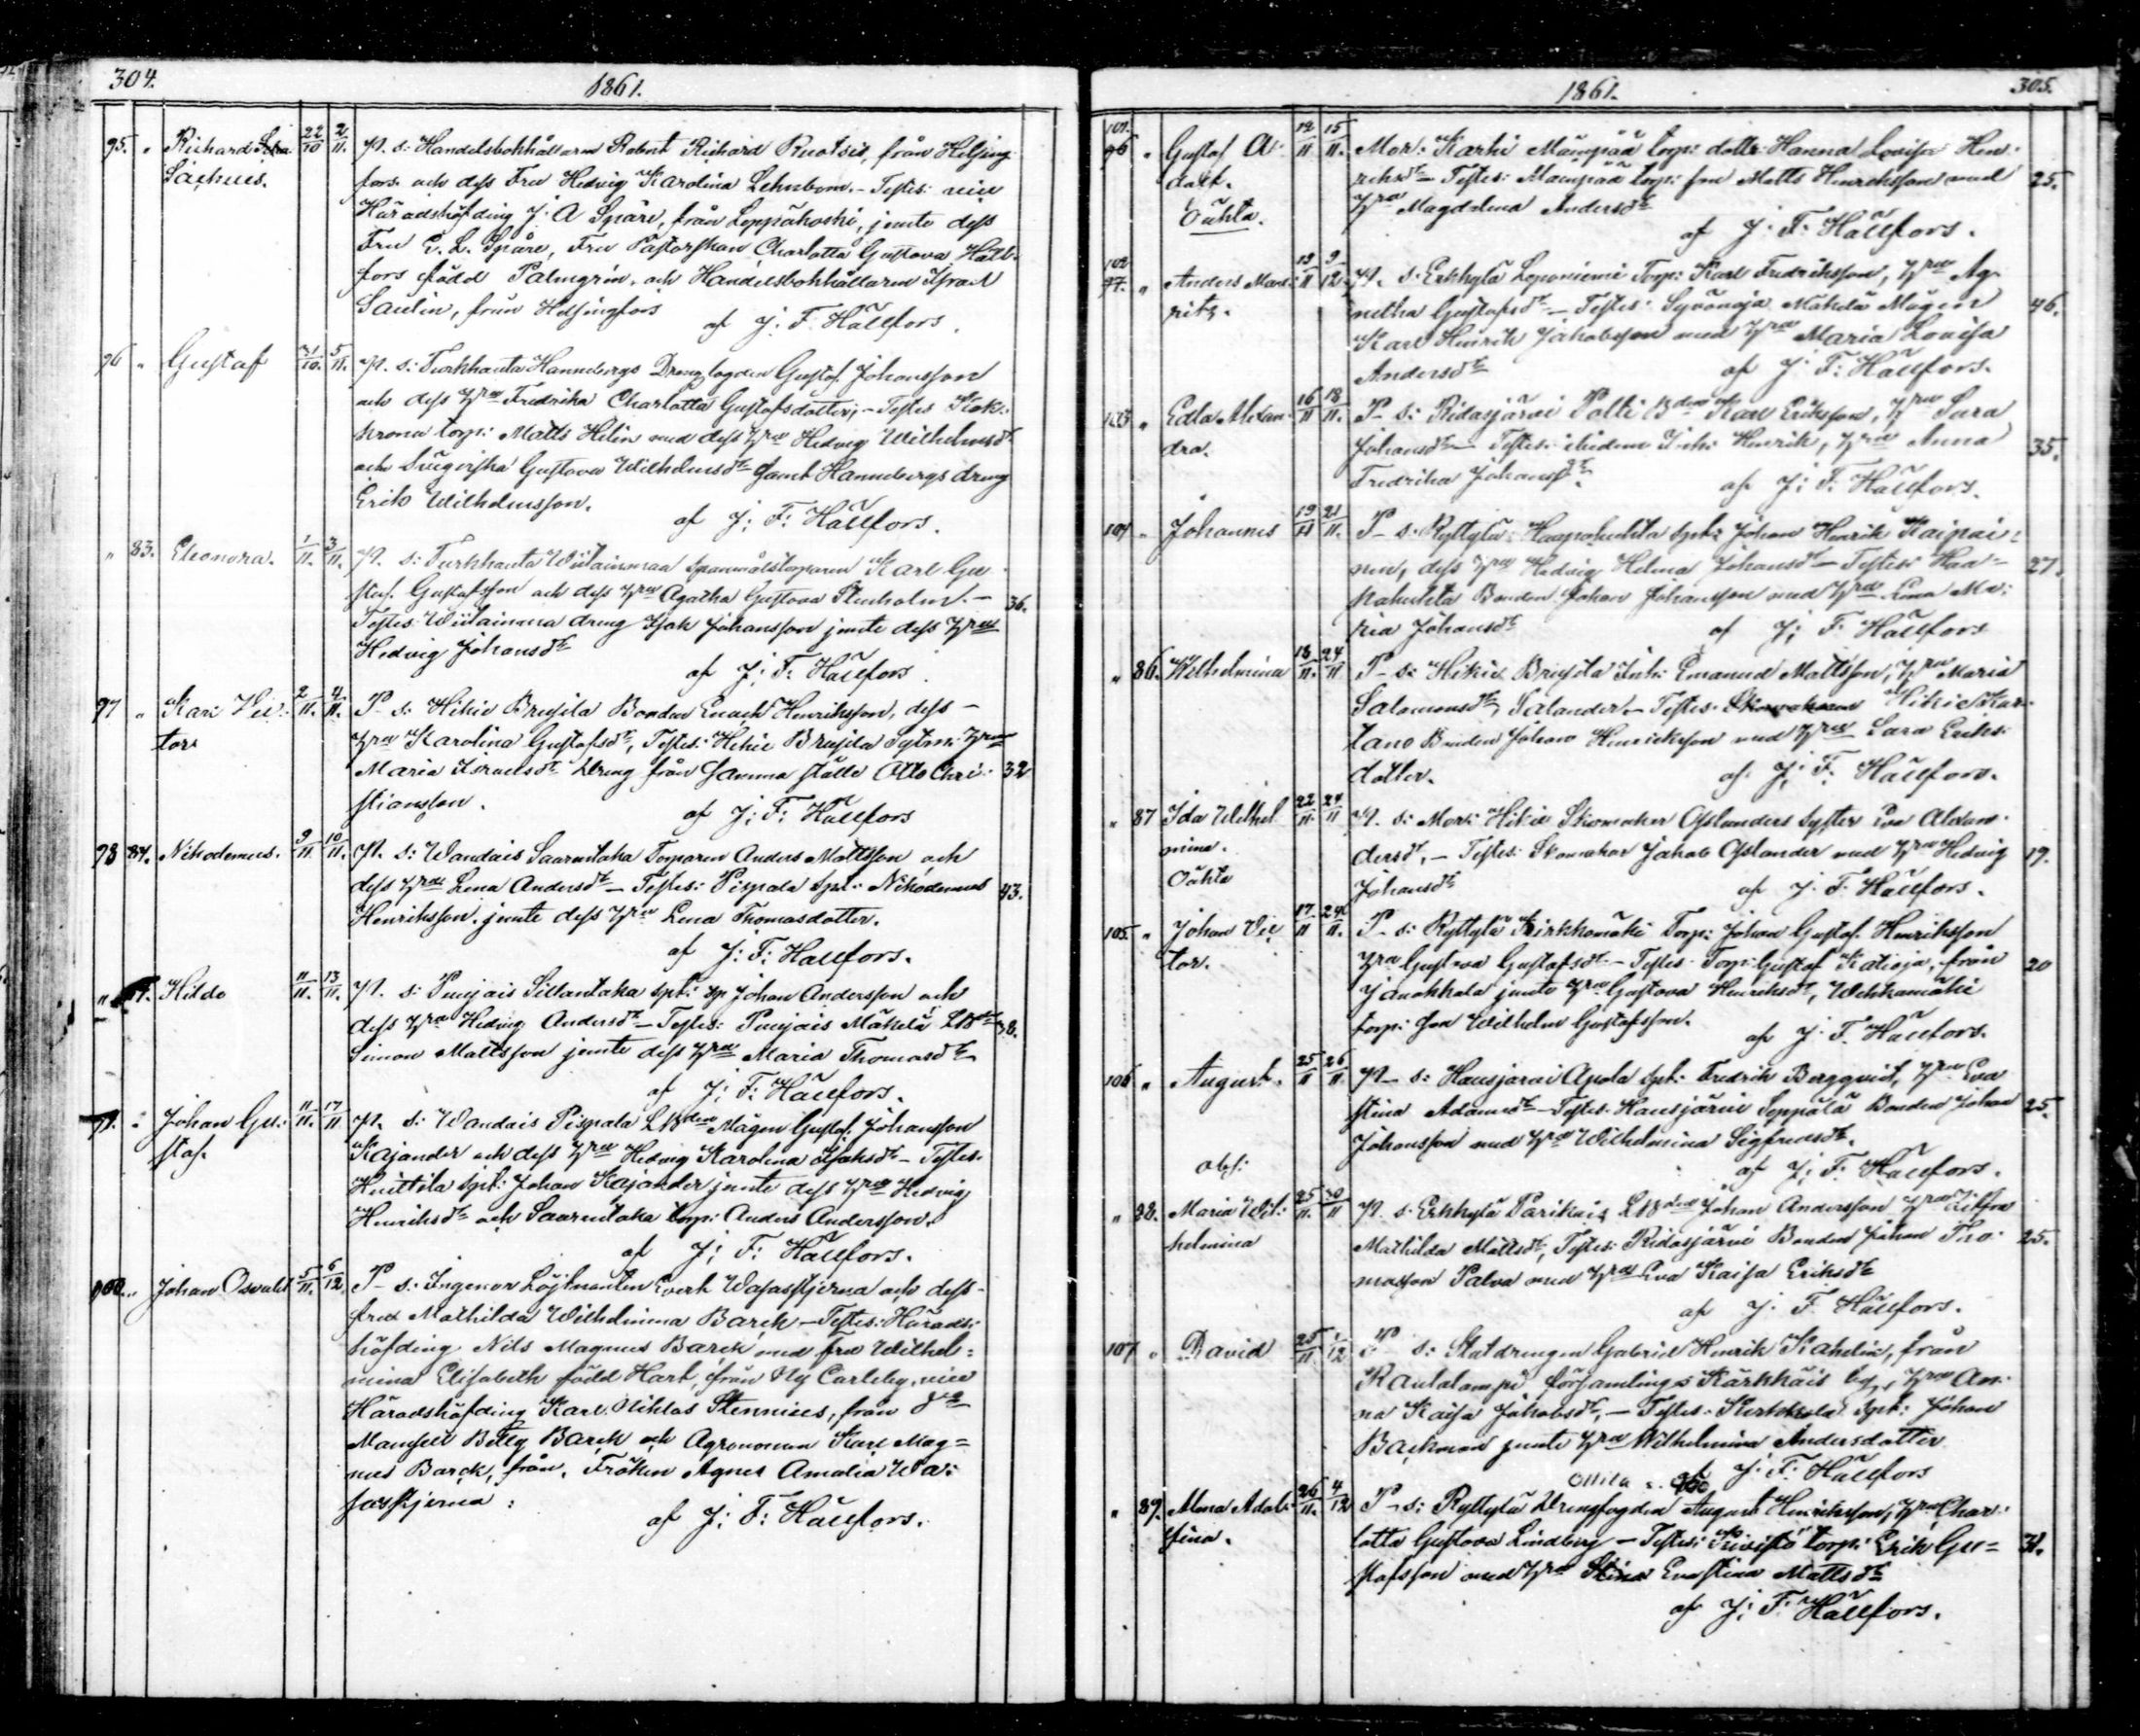 304.
1861.
95. " Richard 22/10 2/11. P. s: Handelsbokhållaren Robert Richard Ruotsi, från Helsing-
fors och dess Fru Hedvig Karolina Lehnbom. - Testes: vice
Häradshöfding J. A Spåre, från Loppikoski, jemte dess
Fru E. L. Spåre, Fru Pastorskan Charlotta Gustava Häll-
fors född Palmgrén, och Handelsbokhållaren Israel
Saulin, från Helsingfors
af J. F. Hällfors.
96 " Gustaf 31/10. 5/11. P. s: Turkhauta Hannebergs Drengfogden Gustaf Johansson
och dess Hru Fredrika Charlotta Gustafsdotter; - Testes
torp: Matts Helin med dess Hru Hedvig Wilhelmsdr
och Gustava Wilhelmsdr samt Hannebergs dreng
Erik Wilhelmsson.
af J: F: Hällfors.
" 83. Eleonora. 1/11. 3/11. P. s: Turkhauta Wiitainmaa Karl Gu-
staf Gustafsson och dess Hru Agatha Gustava Stenholm. -
Testes Wiitainmaa dreng Isak Johansson jemte dess Hru 36.
Hedvig Johansdr
af J; F: Hällfors.
97 " Karl Vic- 2/11. 4/11. P. s: Hikie Brusila Bonden Enoch Henriksson, dess -
tor Hru Karolina Gustafsdr, Testes: Hikie Brusila Sytn: Hru
Maria Israelsdr Dreng från samma ställe Otto Chri- 32
stiansson.
af J: F: Hällfors
98 84. Nikodemus. 9/11 10/11. P. s: Wandais Saarentaka Torparen Anders Mattsson och
dess Hru Lena Andersdr - Testes: Pispala Spt: Nikodemus 43.
Henriksson jemte dess Hru Lena Thomasdotter.
af J: F: Hällfors.
" Hilda 11/11. 13/11. P. s: Punjais Sillantaka Spt: Johan Andersson och
dess Hru Hedvig Andersdr - Testes: Punjais Mäkelä LBden 38.
Simon Mattsson jemte dess Hru Maria Thomasdr
af J; F: Hällfors.
99. " Johan Gu- 11/11. 17/11 P. s: Wandais Pispala LBden Mågen Gustaf Johansson
staf. Kajander och dess Hru Hedvig Karolina Isaksdr - Testes.
Huittila Spt: Johan Kajander jemte dess Hru Hedvig
Henriksdr och Saarentaka torp: Anders Andersson.
af J; F: Hällfors.
100. " Johan Osvald 5/11. 6/12. P. s: Ingenior Löjtnanten Evert Wasastjerna och dess
fru Mathilda Wilhelmina Barck - Testes: Härads-
höfding Nils Magnus Barck med fru Wilhel-
mina Elisabeth född Hart, från Ny Carleby, vice
Häradshöfding Karl Niklas Stennius, från
Mamsell Betty Barck och Agronomen Karl Mag-
nus Barck, från, Fröken Agnes Amalia Wa-
sastjerna:
af J; F: Hällfors.
1861.
305.
101.
96 " Gustaf A- 12/11 15/11. Mor: Karhi Mäenpää torp: dottr Hanna Lovisa Hen-
dolf. riksdr - Testes: Mäenpää torp: son Matts Henriksson med 25.
Oäkta. Hru Magdalena Andersdr
af J: F: Hällfors.
102
97. " Anders Mau- 13/11 9/12. P. s: Erkkylä Leponiemi Torp: Karl Fredriksson, Hru Ag-
ritz. netha Gustafsdr - Testes: Syvänoja Mäkelä Mågen 46.
Karl Henrik Jakobsson med Hru Maria Lovisa
Andersdr
af J: F: Hällfors.
103 " Edla Alexan- 16/11 18/11. P. s: Ridasjärvi Polli Bden Karl Eriksson, Hru Sara
dra. Johansdr - Testes: ibidem Inh: Henrik, Hru Anna 35.
Fredrika Johansdr.
af J; F: Hällfors.
104 " Johannes 19/11 21/11. P. s: Ryttylä Haapahuhta Spt: Johan Henrik Kaipai-
nen, dess Hru Hedvig Helena Johansdr - Testes: Haa- 27.
pahuhta Bonden Johan Johansson med Hru Lena Ma-
ria Johansdr
af J; F: Hällfors
" 86. Wilhelmina 18/11. 24/11 P. s: Hikie Brusila Inh: Emanuel Mattsson, Hru Maria
Salomonsdr Salander. - Testes: Hikie
Bonden Johan Henriksson med Hru Sara Eriks-
dotter.
af J; F: Hällfors.
" 87 Ida Wilhel- 22/11. 24/11 P. s: Mor: Hikie Skomaker Oslanders syster Eva Alexan-
mina. dersdr, - Testes: Skomakar Jakob Oslander med Hru Hedvig 19.
Oäkta Johansdr
af J. F. Hällfors.
105. " Johan Vic- 17/11 24/11. P. s: Ryttylä Kirkkomäki Torp: Johan Gustaf Henriksson
tor. Hru Gustava Gustafsdr - Testes: Torp: Gustaf Katioja, från 20
Janakkala jemte Hru Gustava Henriksdr, Wehkamäki
torp: son Wilhelm Gustafsson.
af J. F. Hällfors.
106 " August. 25/11 26/11. P. s: Hausjärvi Apola Spt: Fredrik Bergqvist, Hru Eva
Stina Adamsdr - Testes: Hausjärvi Seppälä Bonden Johan 25.
Johansson med Hru Wilhelmina Sigfredsdr.
af J; F: Hällfors.
" 88. Maria Wil- 25/11. 30/11 P. s: Erkkylä Parikais LBden Johan Andersson Hru
helmina Mathilda Mattsdr, Testes: Ridasjärvi Bonden Johan Tho- 25.
masson Palva med Hru Eva Kaisa Eriksdr
af J. F. Hällfors.
107 " David 25/11 1/12 P. s: Statdrengen Gabriel Henrik Kahelin, från
Rautalampi församling Kärkkäis by, Hru An-
na Kaisa Jakobsdr, - Testes: Spt: Johan
Backman jemte Hru Wilhelmina Andersdotter
af J: F: Hällfors
Ollila
" 89. Alma Adol- 26/11. 4/12 P. s: Ryttylä Drengfogden August Henriksson, Hru Char-
fina. lotta Gustava Lindberg - Testes: Kivistö torp: Erik Gu- 31.
stafsson med Hru Eva Stina Mattsdr
af J; F: Hällfors.